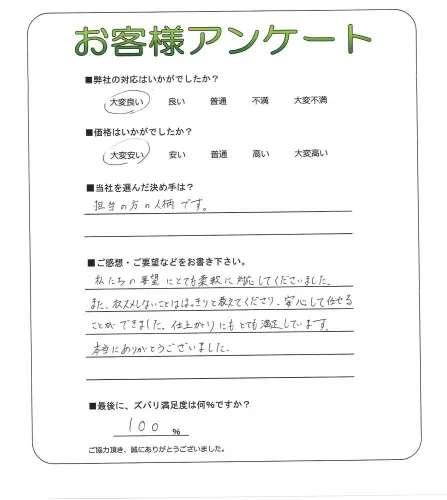 お客様アンケート
■弊社の対応はいかがでしたか？
大変良い 良い 普通 不満 大変不満
■価格はいかがでしたか？
大変安い 安い 普通 高い 大変高い
■当社を選んだ決め手は？
担当の方の人柄です。
■ご感想・ご要望などをお書き下さい。
私たちの希望にとても柔軟に対応してくださいました。
また、おススメしないことははっきりと教えてくださり、安心して任せる
ことができました。仕上がりにもとても満足しています。
本当にありがとうございました。
■最後に、ズバリ満足度は何%ですか？
100 %
ご協力頂き、誠にありがとうございました。